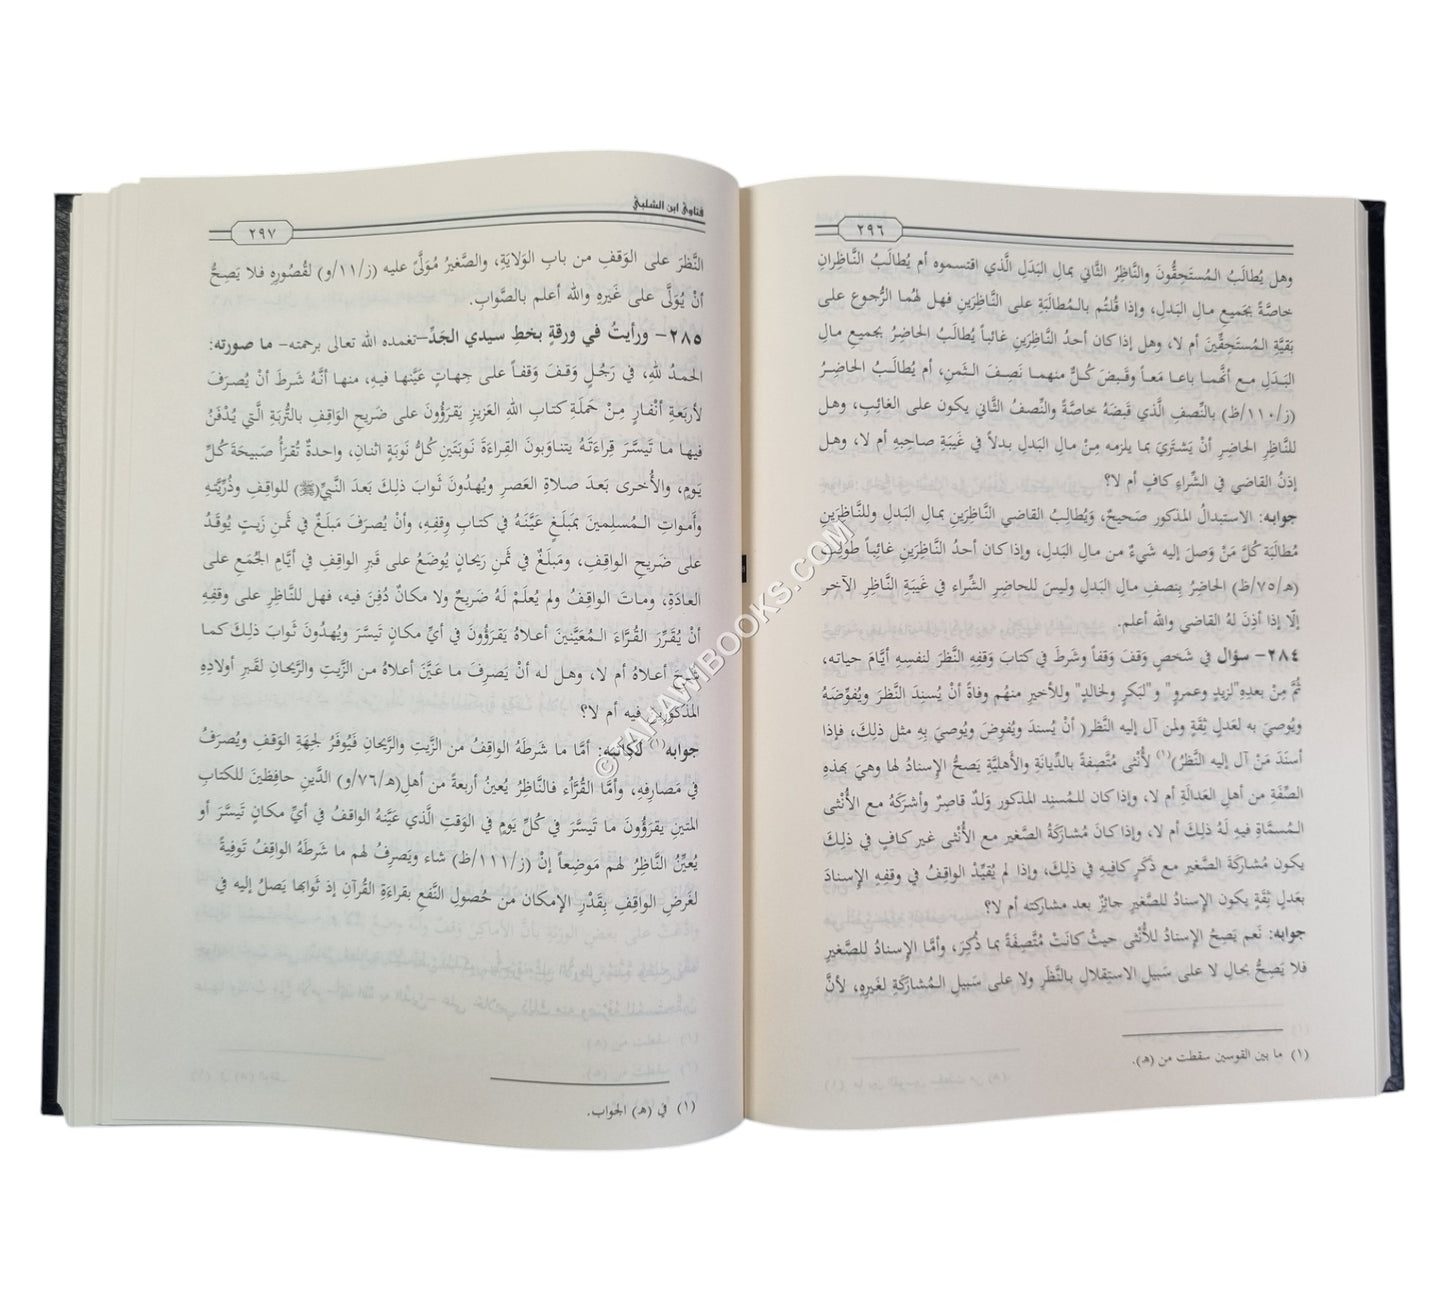 ٢٩٦
وهل يُطالَبُ المُستَحِقُّونَ والنَّاظِرُ الثَّاني بمالِ البَدَلِ الَّذي اقتسموه أم يُطالَبُ النَّاظِرانِ
خاصَّةً بجَميعِ مالِ البَدلِ، وإذا قُلتُم بالمُطالَبَةِ على النَّاظِرَينِ فهل لهُما الرُّجوع على
بَقيَّةِ المُستَحِقِّينَ أم لا، وهل إذا كان أحدُ النَّاظِرَينِ غائباً يُطالَبُ الحاضِرُ بجميعِ مالِ
البَدَلِ مع أنَّهما باعا مَعاً وقَبضَ كُلٌّ منهما نَصِفَ الثَّمنِ، أم يُطالَبُ الحاضِرُ
(ز/١١٠/ظ) بالنِّصفِ الَّذي قَبضَهُ خاصَّةً والنِّصفُ الثَّاني يكون على الغائِبِ، وهل
للنَّاظِرِ الحاضِرِ أنْ يَشتَريَ بما يلزمه مِنْ مالِ البَدلِ بدلاً في غَيبَةِ صاحِبهِ أم لا، وهل
إذنُ القاضي في الشِّراءِ كافٍ أم لا؟
جوابه: الاستبدالُ المذكور صَحيحٌ، ويُطالِبُ القاضي النَّاظِرَينِ بمالِ البَدلِ وللنَّاظِرَينِ
مُطالَبَة كُلَّ مَنْ وَصلَ إليه شَيءٌ من مالِ البَدلِ، وإذا كان أحدُ النَّاظِرَينِ غائِباً طُولِبَ
(ه/٧٥/ظ) الحاضِرُ بِنصفِ مالِ البَدلِ وليسَ للحاضِرِ الشِّراء في غَيبَةِ النَّاظِرِ الآخر
إلّا إذا أذِنَ لهُ القاضي والله أعلم.
٢٨٤- سؤال في شَخصٍ وَقفَ وَقفاً وشَرطَ في كتابَ وَقفِهِ النَّظرَ لنفسِهِ أيَّامَ حياته،
ثُمَّ مِنْ بعدِهِ"لزيدٍ وعمروٍ" و"لبَكرٍ ولخالدٍ" وللأخيرِ منهُم وفاةً أنْ يُسنِدَ النَّظرَ ويُفوِّضَهُ
ويُوصيَ به لعَدلٍ ثِقَةٍ ولمن آل إليه النَّظر( أنْ يُسندَ ويُفوِضَ ويُوصيَ بهِ مثل ذلِكَ، فإذا
أسنَدَ مَنْ آلَ إليه النَّظرُ)(١) لأُنثى مُتَّصِفةً بالدِّيانَةِ والأهليَّةِ يَصحُّ الإسنادُ لها وهيَ بهذهِ
الصِّفَةِ من أهلِ العَدالَةِ أم لا، وإذا كان للمُسنِد المذكور وَلدٌ قاصِرٌ وأشرَكَهُ مع الأُنْثى
المُسمَّاةِ فيهِ لهُ ذلِكَ أم لا، وإذا كانَ مُشارَكَةُ الصَّغيرِ مع الأُنثى غير كافٍ في ذلِكَ
يكون مُشارَكَةَ الصَّغير مع ذَكَرٍ كافيهِ في ذلِكَ، وإذا لم يُقَيِّدْ الواقِفُ في وقفِهِ الإسنادَ
بعَدلٍ ثِقَةٍ يكون الإسنادُ للصَّغيرِ جائِزٌ بعد مشاركته أم لا؟
جوابه: نَعم يَصحُ الإسنادُ للأُنْثى حيثُ كانَتْ مُتَّصِفَةً بما ذُكِرَ، وأمَّا الإسنادُ للصَّغيرِ
فلا يَصِحُّ بحالٍ لا على سَبيلِ الاستِقلالِ بالنَّظَرِ ولا على سَبيلِ المُشارَكَةِ لغَيرِهِ، لأنَّ
(١) ما بين القوسين سقطت من (ه).
فتاوى ابن الشلبي
٢٩٧
النَّظرَ على الوَقفِ من بابِ الوَلايَةِ، والصَّغيرُ مُولًّى عليه (ز/١١/و) لقُصُورِهِ فلا يَصِحُّ
أنْ يُوَلَّى على غَيرِهِ والله أعلم بالصَّوابِ.
٢٨٥- ورأيتُ في ورقةٍ بخط سيدي الجَدِّ-تغمده الله تعالى برحمته- ما صورته:
الحمدُ للهِ، في رَجُلٍ وَقفَ وَقفاً على جِهاتٍ عَيَّنها فيهِ، منها أنَّهُ شَرطَ أنْ يُصرَفَ
لأربعَةِ أنْفارٍ مِنْ حَمَلَةِ كتاب الله العَزيزِ يَقرَؤُونَ على ضَريحِ الوَاقِفِ بالتُّربَةِ الَّتي يُدْفَنُ
فيها ما تَيسَّرَ قِراءَتَهُ يتناوَبونَ القِراءَةَ نَوبَتَينِ كُلُّ نَوبَةٍ اثنانِ، واحدةٌ تُقرأُ صَبيحَةَ كُلِّ
يَومٍ، والأُخرى بَعدَ صلاةِ العَصرِ ويُهدُونَ ثَوابَ ذلِكَ بَعدَ النَّبيِّ(ﷺ) للواقِفِ وذُرِّيَّتِهِ
وأمواتِ المُسلِمينَ بمَبلَغٍ عَيَّنَهُ في كتابِ وقفِهِ، وأنْ يُصرَفَ مَبلَغٌ في ثَمنِ زَيتٍ يُوقَدُ
على ضَريحِ الواقِفِ، ومَبلَغٌ في ثَمنِ رَيحانٍ يُوضَعُ على قَبرِ الواقِفِ في أيَّامِ الجُمَعِ على
العادَةِ، وماتَ الواقِفُ ولم يُعلَمْ لَهُ ضَريحٌ ولا مكانٌ دُفِنَ فيه، فهل للنَّاظِرِ على وقفِهِ
أنْ يُقَرِّرَ القُرَّاءَ المُعَيَّنينَ أعلاهُ يَقرَؤُونَ في أيِّ مكانٍ تَيسَّرَ ويُهدُونَ ثَوابَ ذلِكَ كما
شُرِحَ أعلاهُ أم لا، وهل له أنْ يَصرِفَ ما عَيَّنَ أعلاهُ من الزَّيتِ والرَّيحانِ لقَبرِ أولادِهِ
المَذكورينَ فيه أم لا؟
جوابه(١) لكاتبه: أمَّا ما شَرطَهُ الواقِفُ من الزَّيتِ والرَّيحانِ فَيُوفَرُ لجِهَةِ الوَقفِ ويُصرَفُ
في مَصارِفِهِ، وأمَّا القُرَّاءُ فالنَّاظِرُ يُعينُ أربعةً من أهلِ(ه/٧٦/و) الدَّينِ حافِظينَ للكتابِ
المَتينِ يقرَؤُونَ ما تَيسَّرَ في كُلِّ يَومٍ في الوَقتِ الَّذي عَيَّنهُ الواقفُ في أيِّ مكانٍ تَيسَّرَ أو
يُعيِّنُ النَّاظرُ لهم مَوضِعاً إنْ (ز/١١١/ظ) شاء ويَصرِفُ لهم ما شَرطَهُ الواقِفُ تَوفِيةً
لغَرضِ الواقِفِ بِقَدْرِ الإمكان من حُصولِ النَّفعِ بقراءَةِ القُرآنِ إذ ثَوابها يَصلُ إليه في
(١) في (ه) الجواب.
© TAHAWIBOOKS.COM